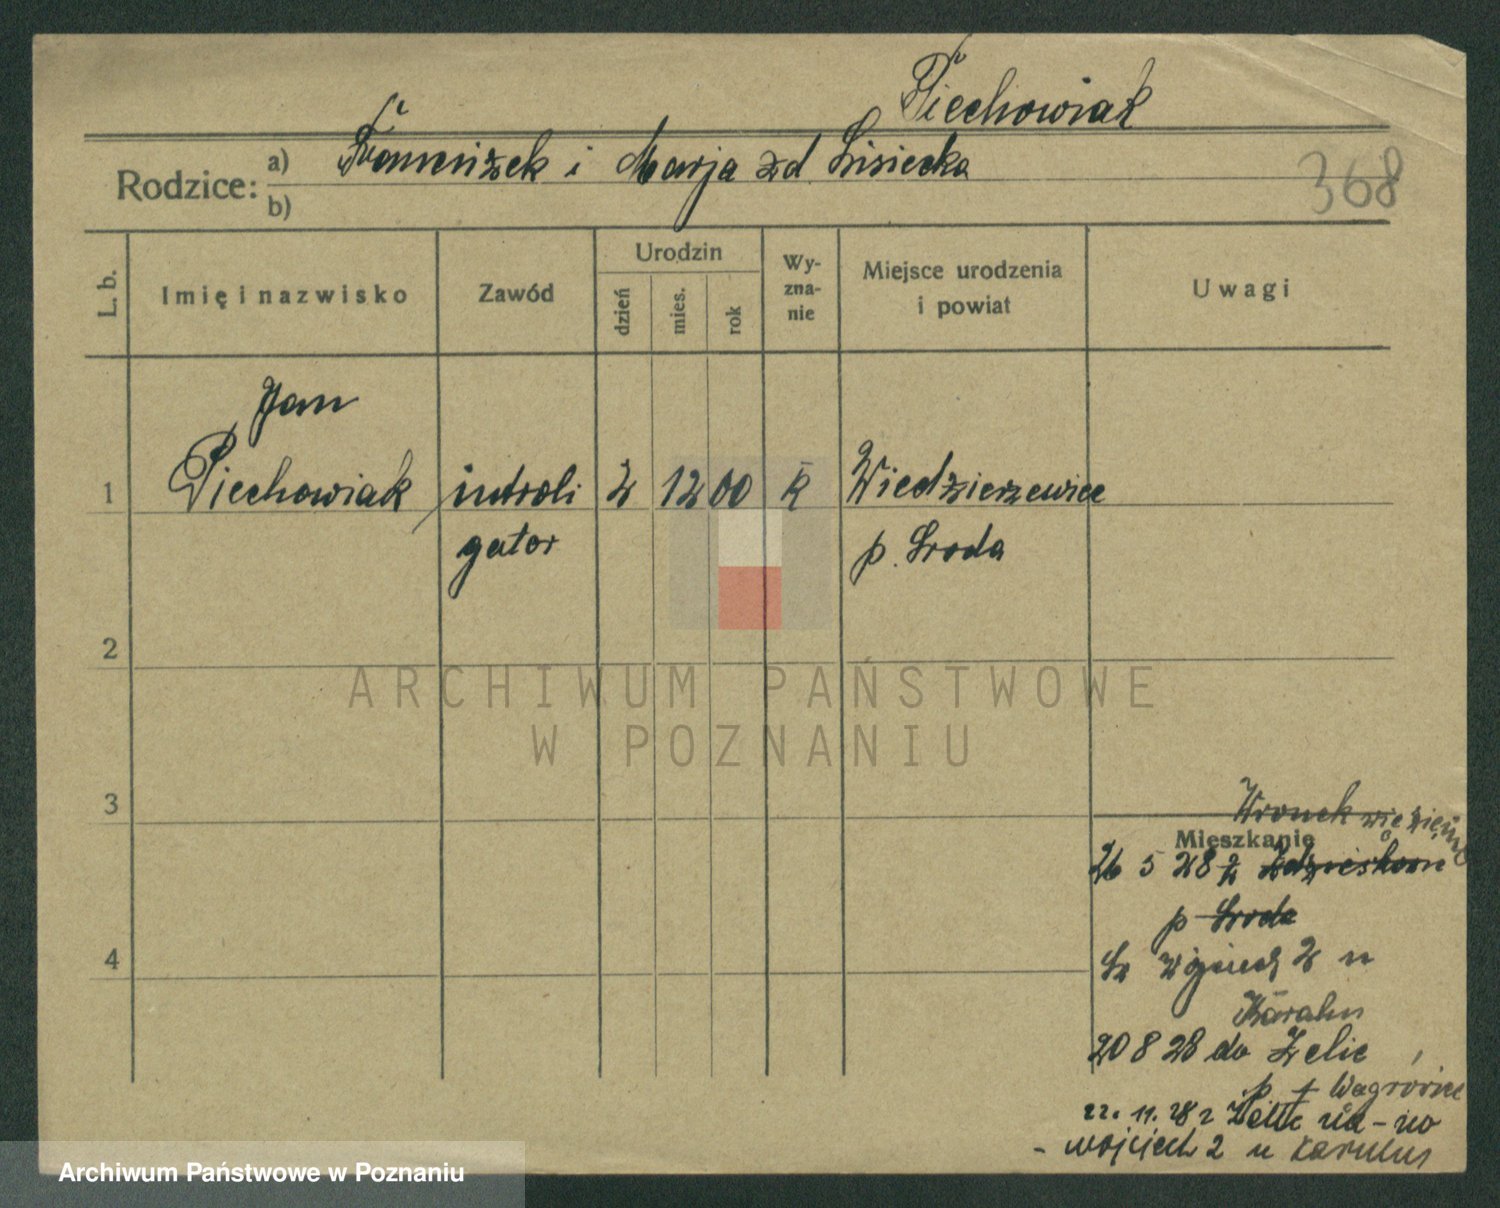 Piechowiak
Rodzice: a) Franciszek i Marja zd Lisiecka
b)
368
L. b. Imię i nazwisko Zawód Urodzin dzień mies. rok Wy-zna-nie Miejsce urodzenia i powiat Uwagi
Jan
1 Piechowiak introli 2 12 00 k
gator p. Sroda
2
ARCHIWUM PAŃSTWOWE
W POZNANIU
3
Wronek
Mieszkanie
26 5 28 z
p Sroda
4
Św Wojciech 2 u
20 8 28 do Zelic
p Wągrowiec
22. 11. 28 z Zelic
wojciech 2 u
Archiwum Państwowe w Poznaniu